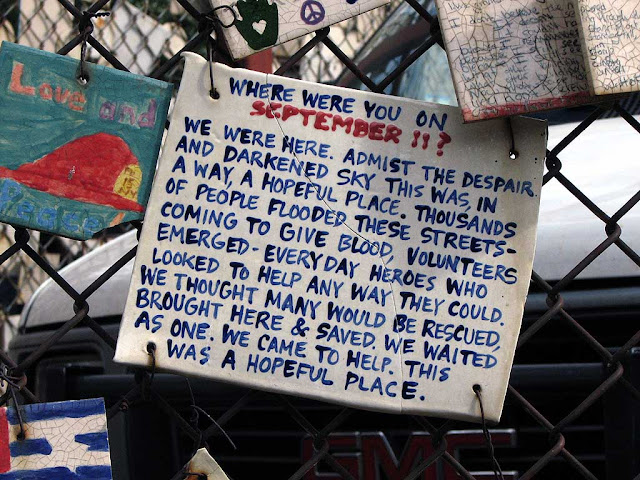 WHERE WERE YOU ON
SEPTEMBER 11?
WE WERE HERE. ADMIST THE DESPAIR
AND DARKENED SKY THIS WAS, IN
A WAY, A HOPEFUL PLACE. THOUSANDS
OF PEOPLE FLOODED THESE STREETS-
COMING TO GIVE BLOOD. VOLUNTEERS
EMERGED-EVERYDAY HEROES WHO
LOOKED TO HELP ANY WAY THEY COULD.
WE THOUGHT MANY WOULD BE RESCUED,
BROUGHT HERE & SAVED. WE WAITED
AS ONE. WE CAME TO HELP. THIS
WAS A HOPEFUL PLACE.
Love and
Peace
GMC